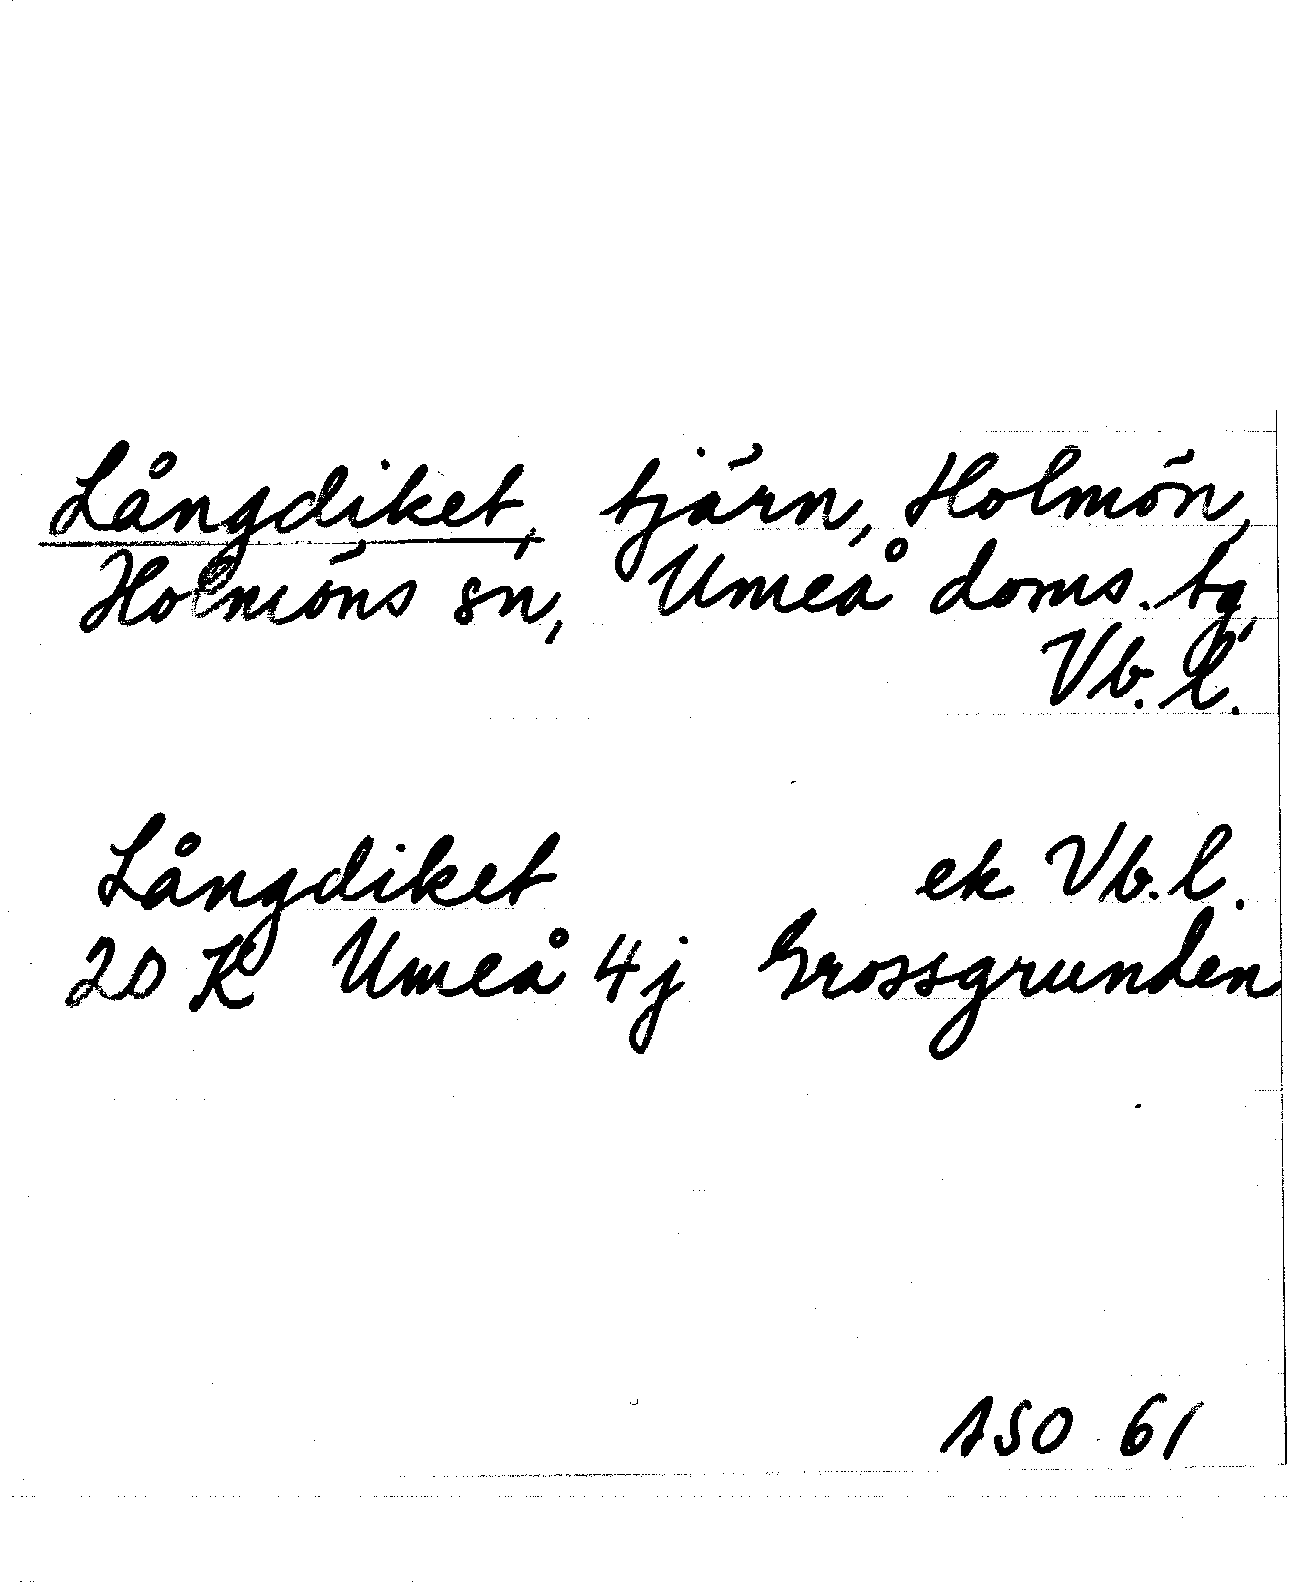 Långdiket, tjärn, Holmön,
Holmöns sn, Umeå doms. tg,
Vb. l.
Långdiket ek Vb. l.
20 K Umeå 4j Grossgrunden
ASO 61